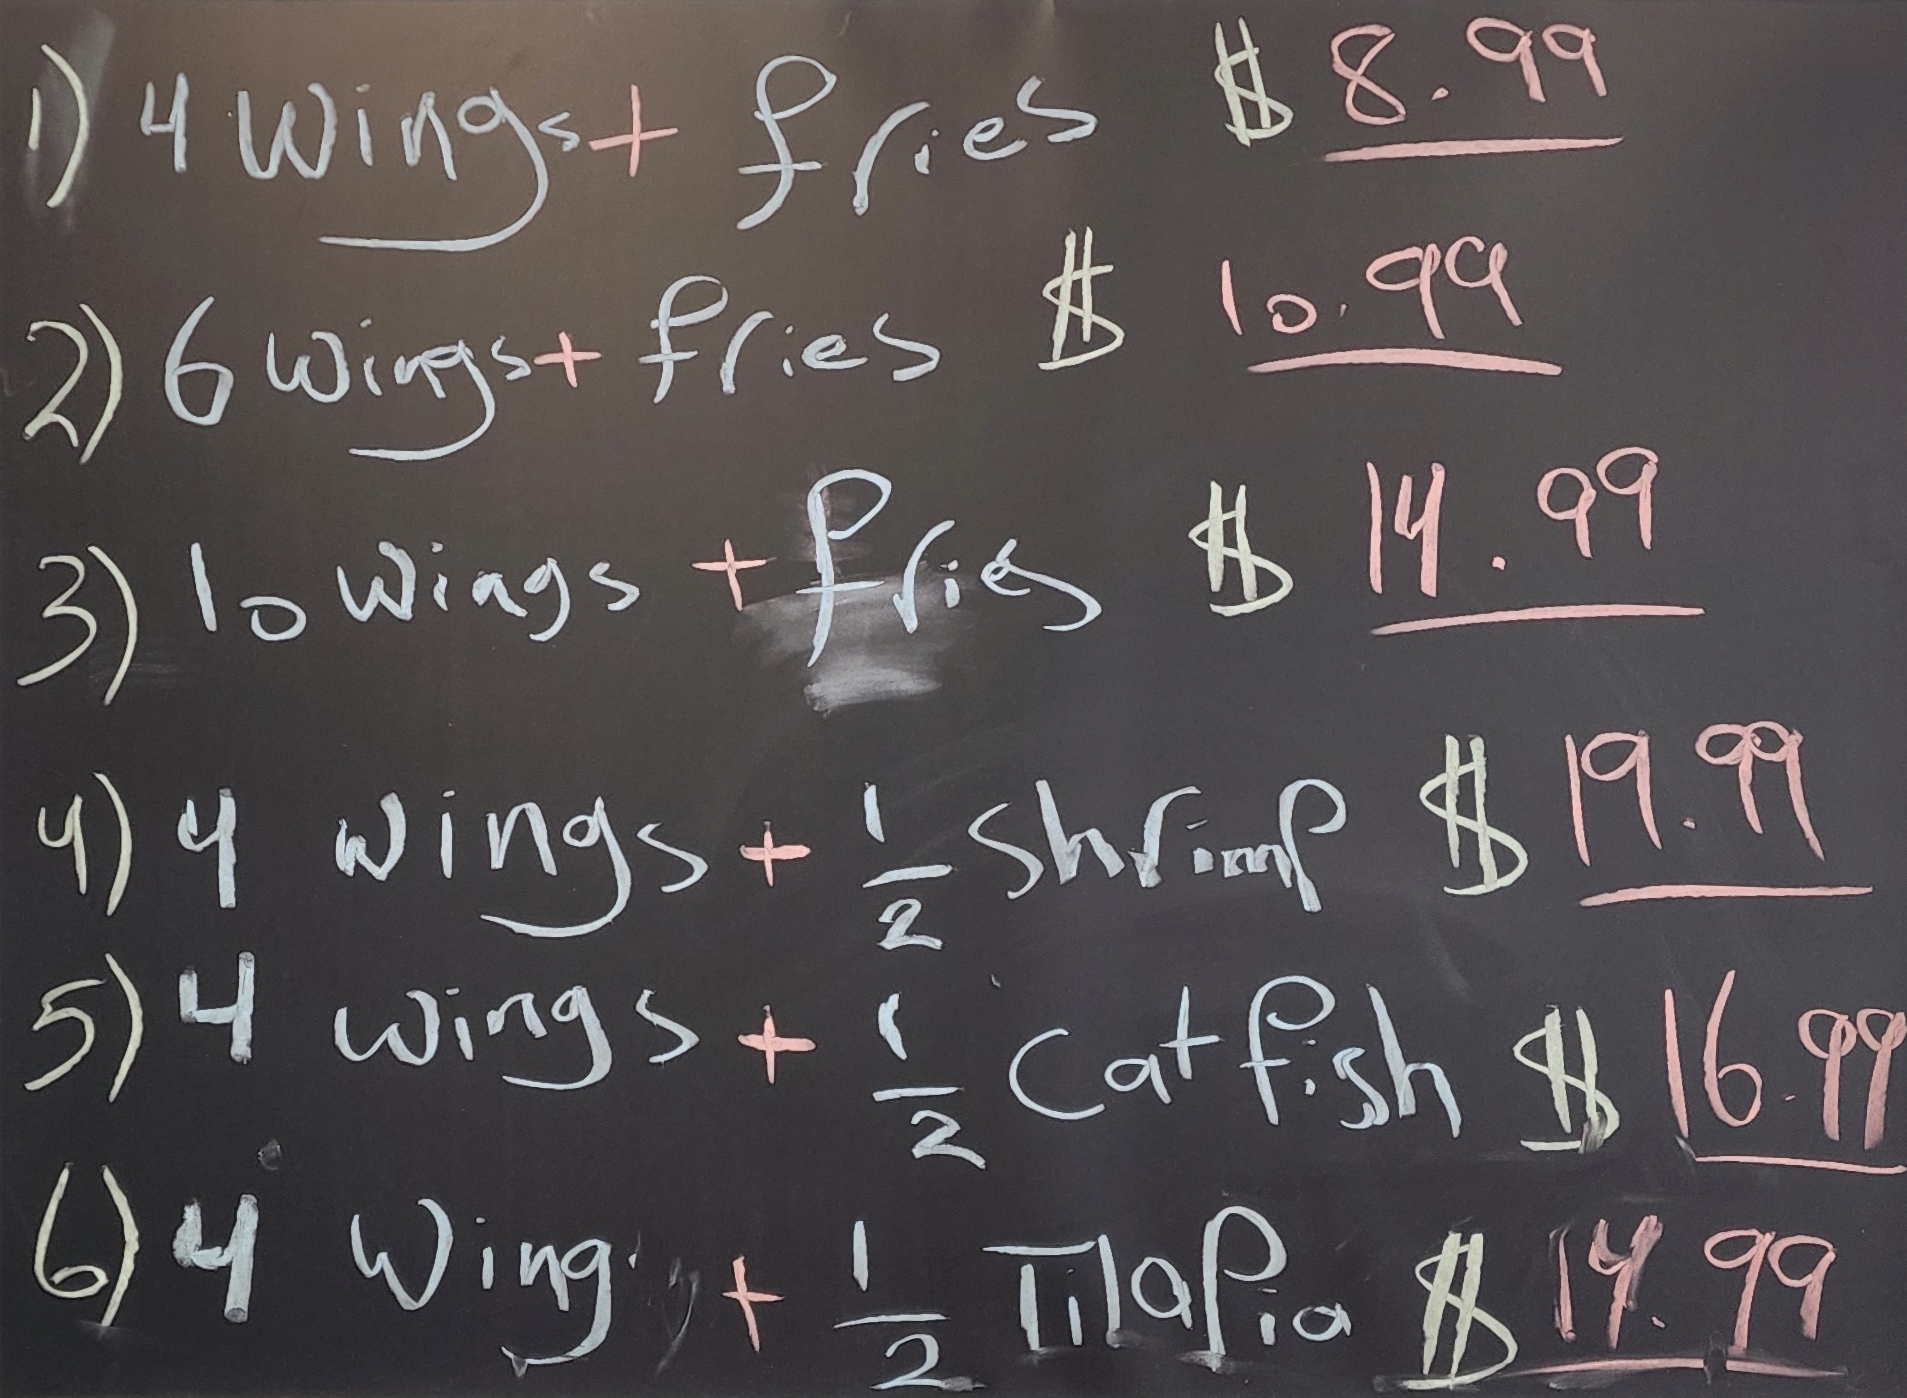 1) 4 Wings + fries $ 8.99
2) 6 Wings + fries $ 10.99
3) 10 Wings + fries $ 14.99
4) 4 wings + 1/2 Shrimp $ 19.99
5) 4 wings + 1/2 Catfish $ 16.99
6) 4 Wing + 1/2 Tilapia $ 14.99